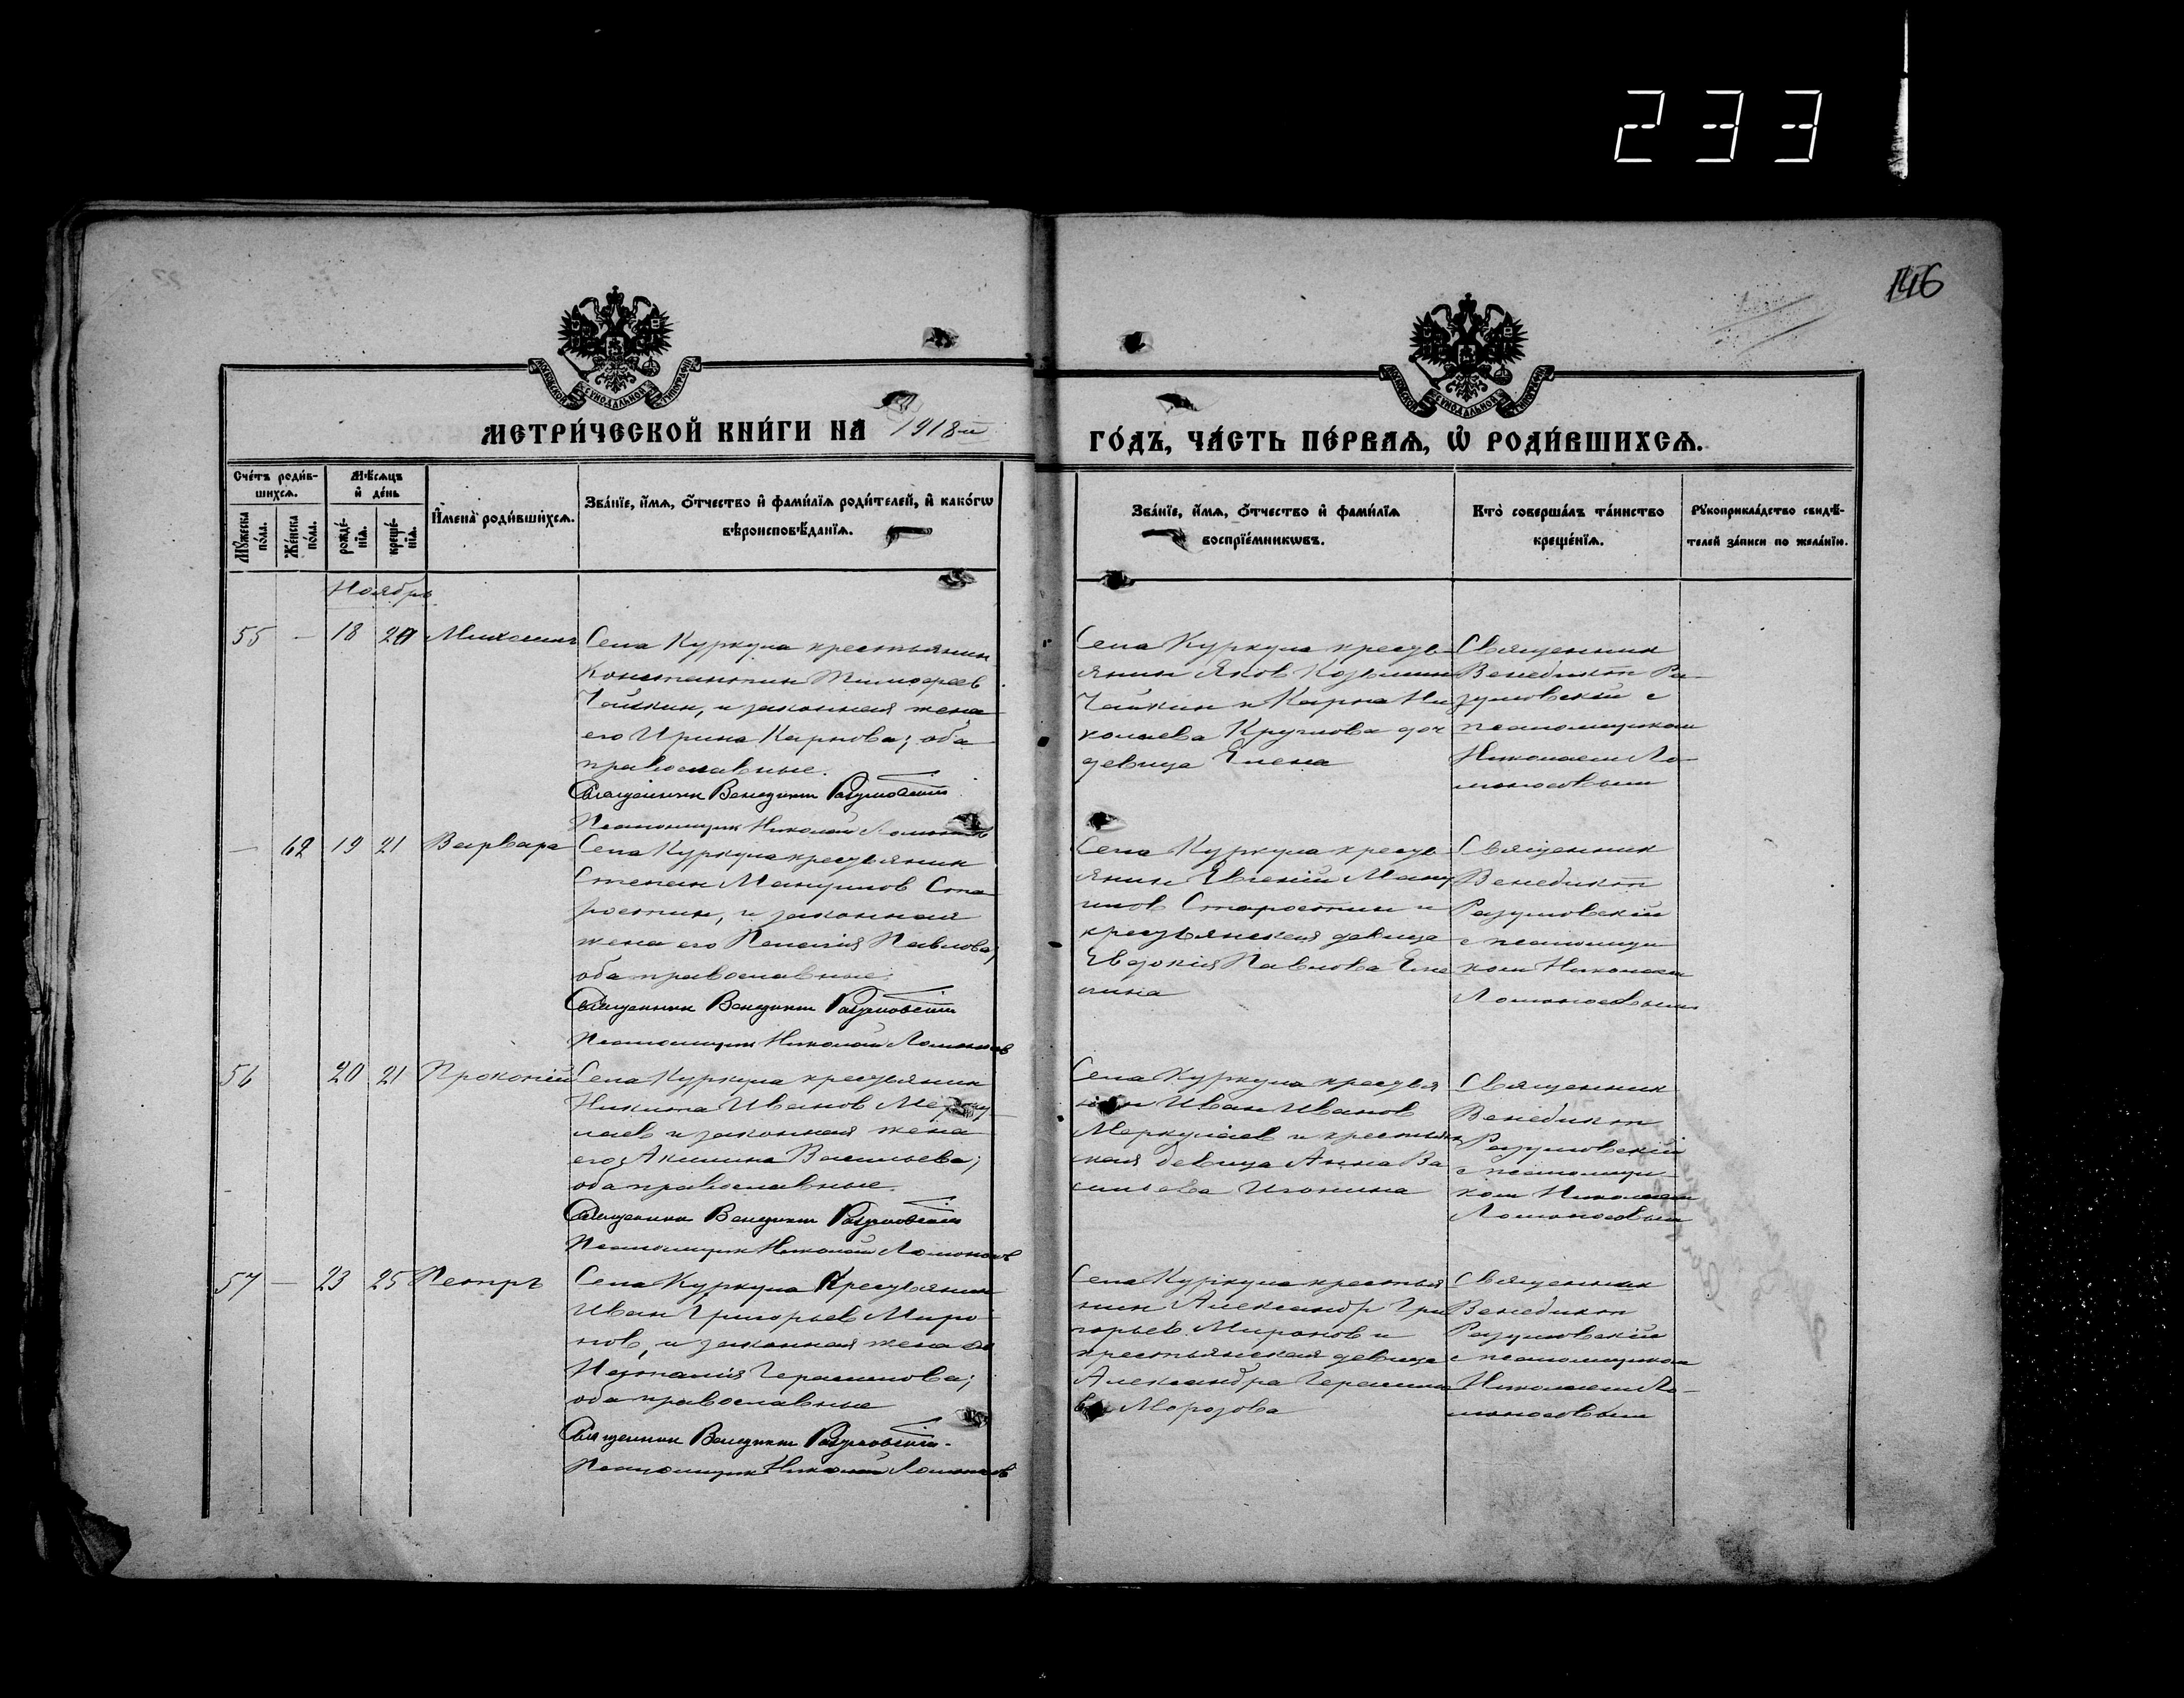 233
146
МЕТРИ́ЧЕСКОЙ КНИ́ГИ НА 1918-й
ГО́ДЪ, ЧА́СТЬ ПЕ́РВАѦ, Ѡ҆ РОДИ́ВШИХСѦ.
Сче́тъ роди́в-
шихсѧ.
Мꙋ́жеска по́ла.
Же́нска по́ла.
Мѣ́сѧцъ
и҆ де́нь
рожде́-
нїѧ.
креще́-
нїѧ.
И҆мена̀ роди́вшихсѧ.
Зва́нїе, и҆́мѧ, ѻ҆́тчество и҆ фами́лїѧ роди́телей, и҆ како́гѡ
вѣроисповѣ́данїѧ.
Зва́нїе, и҆́мѧ, ѻ҆́тчество и҆ фами́лїѧ
воспрїе́мникѡвъ.
Кто̀ соверша́лъ та́инство
креще́нїѧ.
Рꙋкоприкла́дство свидѣ́-
телей за́писи по жела́нїю.
Ноябрь
55 — 18 20 Михаилъ
Села Куркула крестьянин
Константин Тимофеев
Чайкин, и законная жена
его Ирина Карпова; оба
православные.
Священник Венедикт Разумовский
Псаломщик Николай Ломоносов
Села Куркула кресть-
янин Яков Козьмин
Чайкин и Карпа Ни
колаева Круглова доч
девица Елена
Священник
Венедикт Ра-
зумовский с
псаломщиком
Николаем Ло-
моносовым
— 62 19 21 Варвара
Села Куркула крестьянин
Степан Мануилов Ста
ростин, и законная
жена его Пелагия Павлова;
оба православные.
Священник Венедикт Разумовский
Псаломщик Николай Ломоносов
Села Куркула кресть
янин Евгений Ману
илов Старостин и
крестьянская девица
Евдокия Павлова
Священник
Венедикт
Разумовский
с псаломщи
ком Николаем
Ломоносовым
56 20 21 Прокопій
Села Куркула крестьянин
Никита Иванов Мерку
лаев и законная жена
его Акилина Васильева;
оба православные.
Священник Венедикт Разумовский
Псаломщик Николай Ломоносов
Села Куркула крестья
нин Иван Иванов
Меркулаев и крестьян
ская девица Анна Ва
сильева Игонина
Священник
Венедикт
Разумовский
с псаломщи-
ком Николаем
Ломоносовым
57 — 23 25 Петръ
Села Куркула Крестьянин
Иван Григорьев Миро
нов, и законная жена его
Наталия Герасимова;
оба православные
Священник Венедикт Разумовский.
Псаломщик Николай Ломоносов
Села Куркула крестья
нин Александр Гри
горьев Миронов и
крестьянская девица
Александра Герасимо
ва Морозова
Священник
Венедикт
Разумовский
с псаломщиком
Николаем Ло-
моносовым